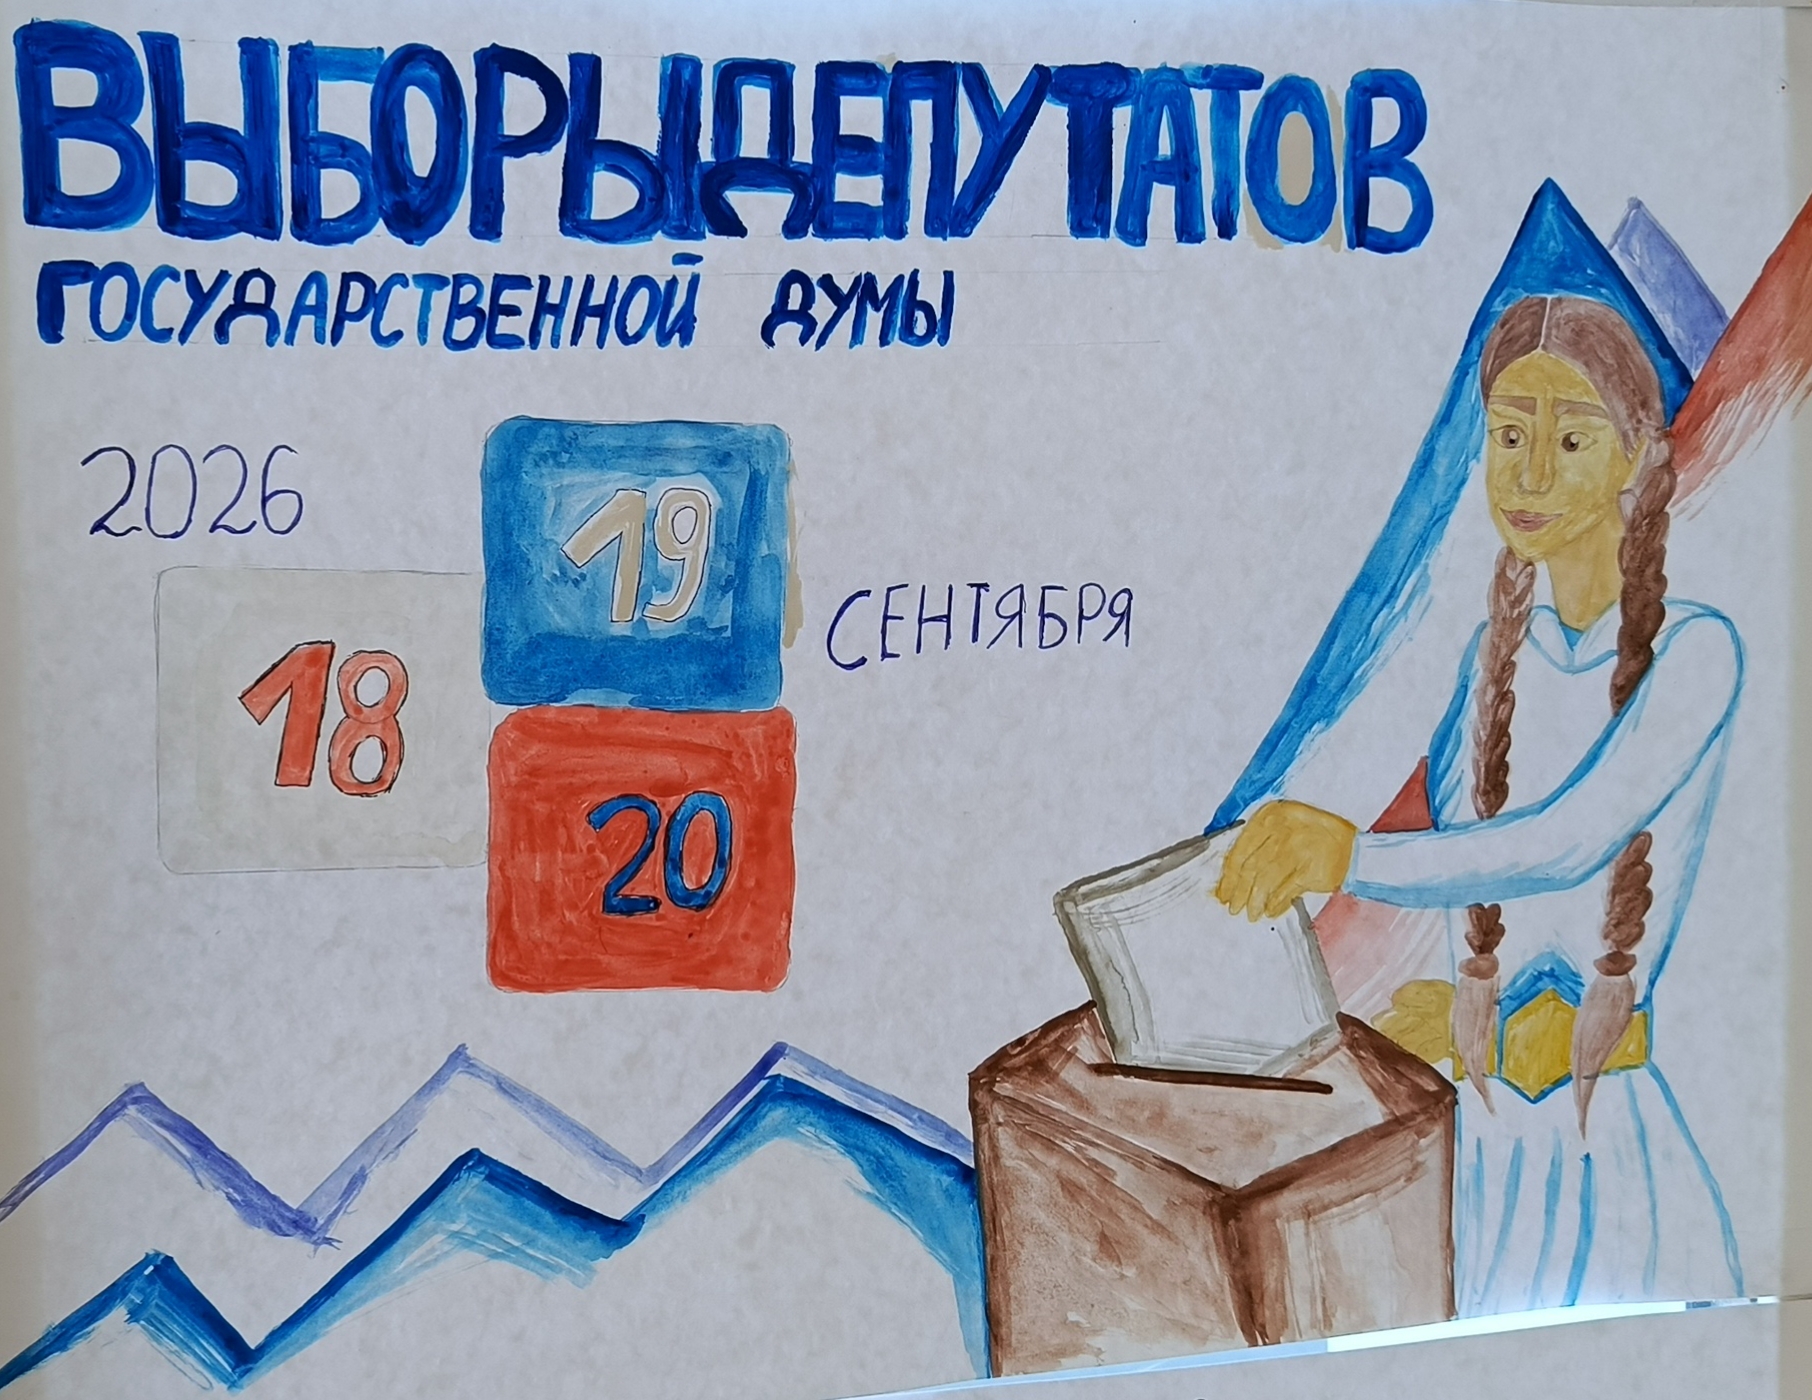 ВЫБОРЫ ДЕПУТАТОВ
ГОСУДАРСТВЕННОЙ ДУМЫ
2026
18
19
20
СЕНТЯБРЯ